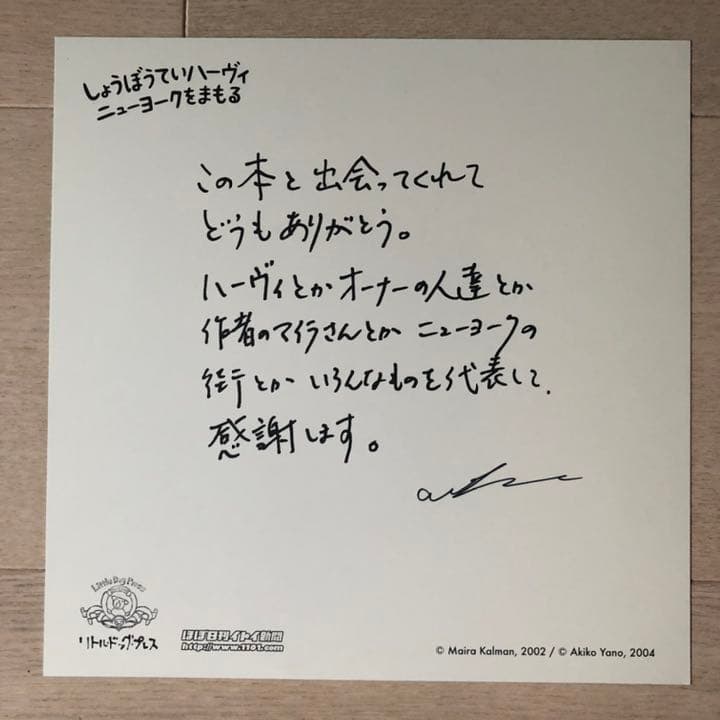 しょうぼうていハーヴィ
ニューヨークをまもる
この本と出会ってくれて
どうもありがとう。
ハーヴィとかオーナーの人達とか
作者のマイラさんとか ニューヨークの
街とか いろんなものを代表して、
感謝します。
Little Dog Press
リトル・ドッグ・プレス
ほぼ日刊イトイ新聞
http://www.1101.com
© Maira Kalman, 2002 / © Akiko Yano, 2004